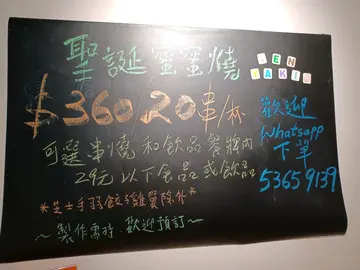 聖誕蛋蛋燒
BEN
ZAKIO
$360/20串/杯
可選串燒和飲品餐牌內
29元以下食品或飲品
*芝士手羽餃子雞翼除外*
~製作需時,歡迎預訂~
歡迎
Whatsapp
下單
53659139